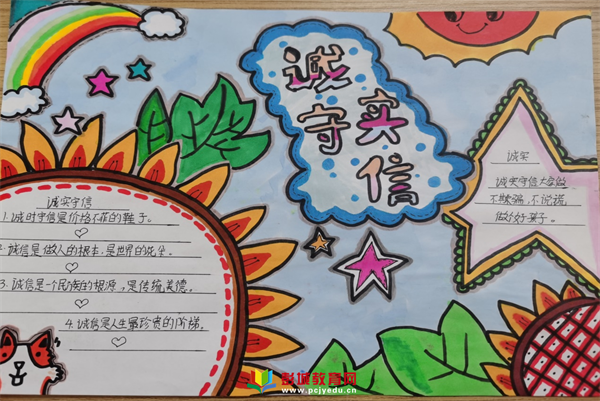 诚实
守信
诚实守信
1.诚时守信是价格不菲的鞋子。
2.诚信是做人的根本.是世界的花朵。
3.诚信是一个民族的根源,是传统美德。
4.诚信是人生最珍贵的阶梯。
诚实
诚实守信大家做
不欺骗.不说谎
做个好孩子。
彭城教育网
www.pcjyedu.cn